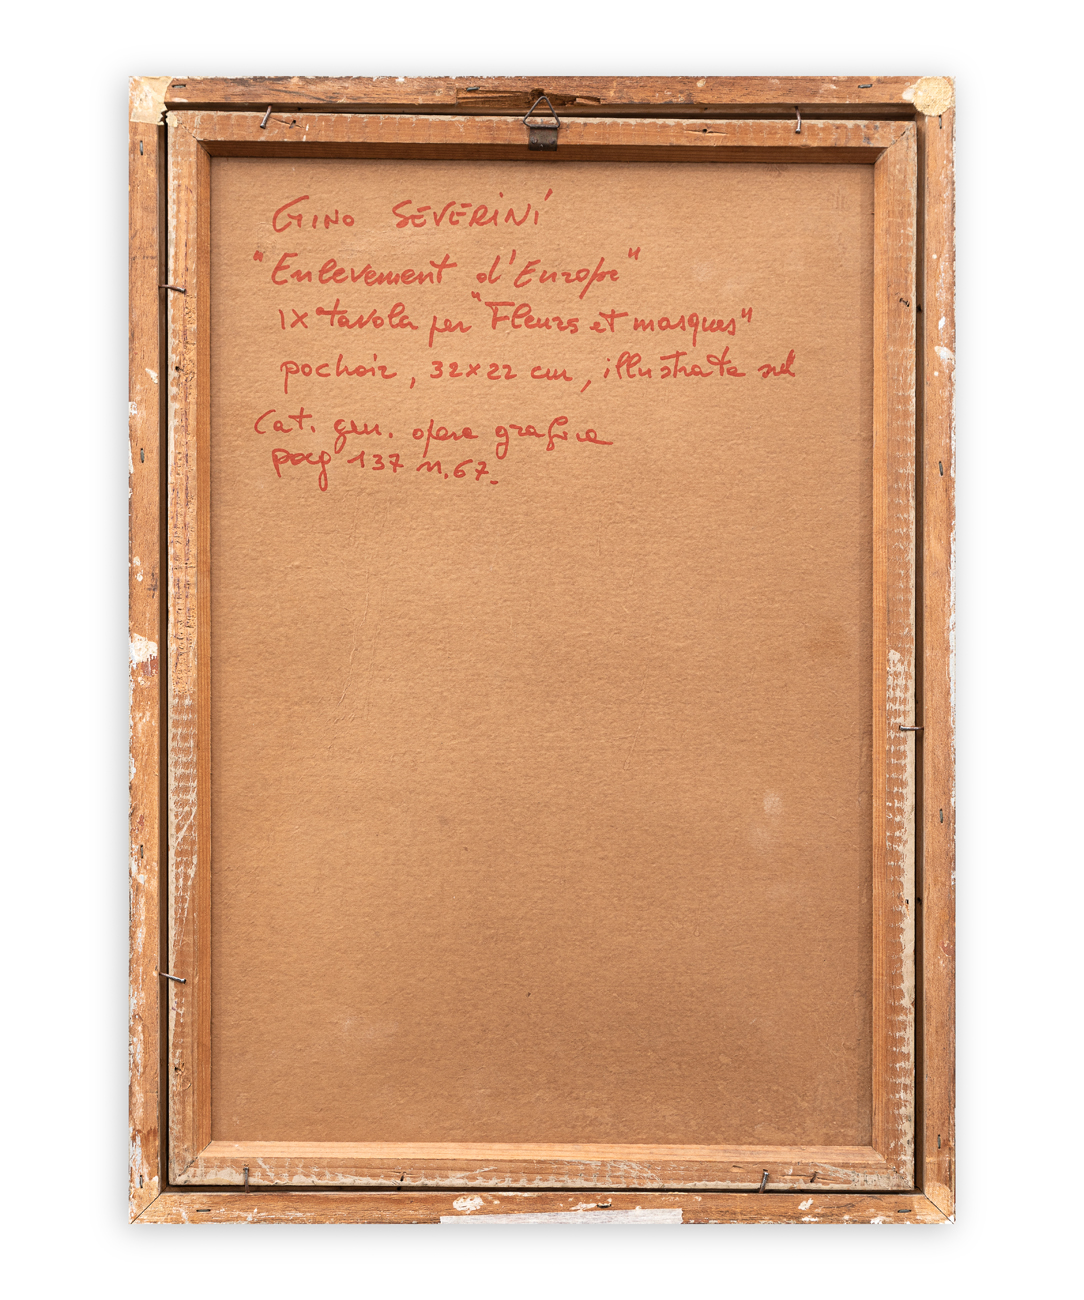 GINO SEVERINI
"Enlevement d'Europe"
IX tavola per "Fleurs et masques"
pochoir, 32x22 cm, illustrata sul
Cat. gen. opera grafica
pag 137 n.67.